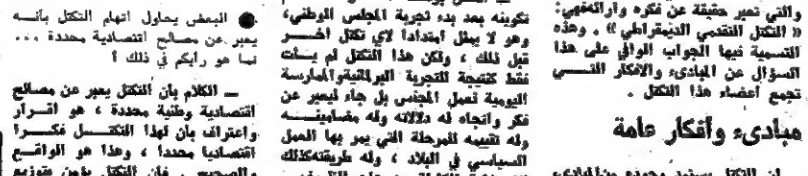 والتي تعبر حقيقة عن فكره وآرائه فهي:
« التكتل التقدمي الديمقراطي » . وهذه
التسمية فيها الجواب الوافي على هذا
السؤال عن المبادىء والافكار التـــي
تجمع أعضاء هذا التكتل .
مبادىء وأفكار عامة
ان التكتل يستمد وجوده من المبادىء
تكوينه بعد بدء تجربة المجلس الوطني،
وهو لا يمثل امتدادا لأي تكتل اخـــر
قبل ذلك ، ولكن هذا التكتل لم يـــأت
فقط كنتيجة للتجربة البرلمانية والممارسة
اليومية لعمل المجلس بل جاء ليعبر عن
فكر واتجاه له دلالاته وله مضامينـــه
وله تقييمه للمرحلة التي يمر بها العمل
السياسي في البلاد ، وله طريقته كذلك
● البعض يحاول اتهام التكتل بأنـــه
يعبر عن مصالح اقتصادية محددة ...
فما هو رأيكم في ذلك ؟
ـــ الكلام بأن التكتل يعبر عن مصالح
اقتصادية وطنية محددة ، هو اقـــرار
واعتراف بأن لهذا التكتـــل فكـــرا
اقتصاديا محددا ، وهذا هو الواقـــع
والصحيح . فان التكتل يؤمن بتوزيع